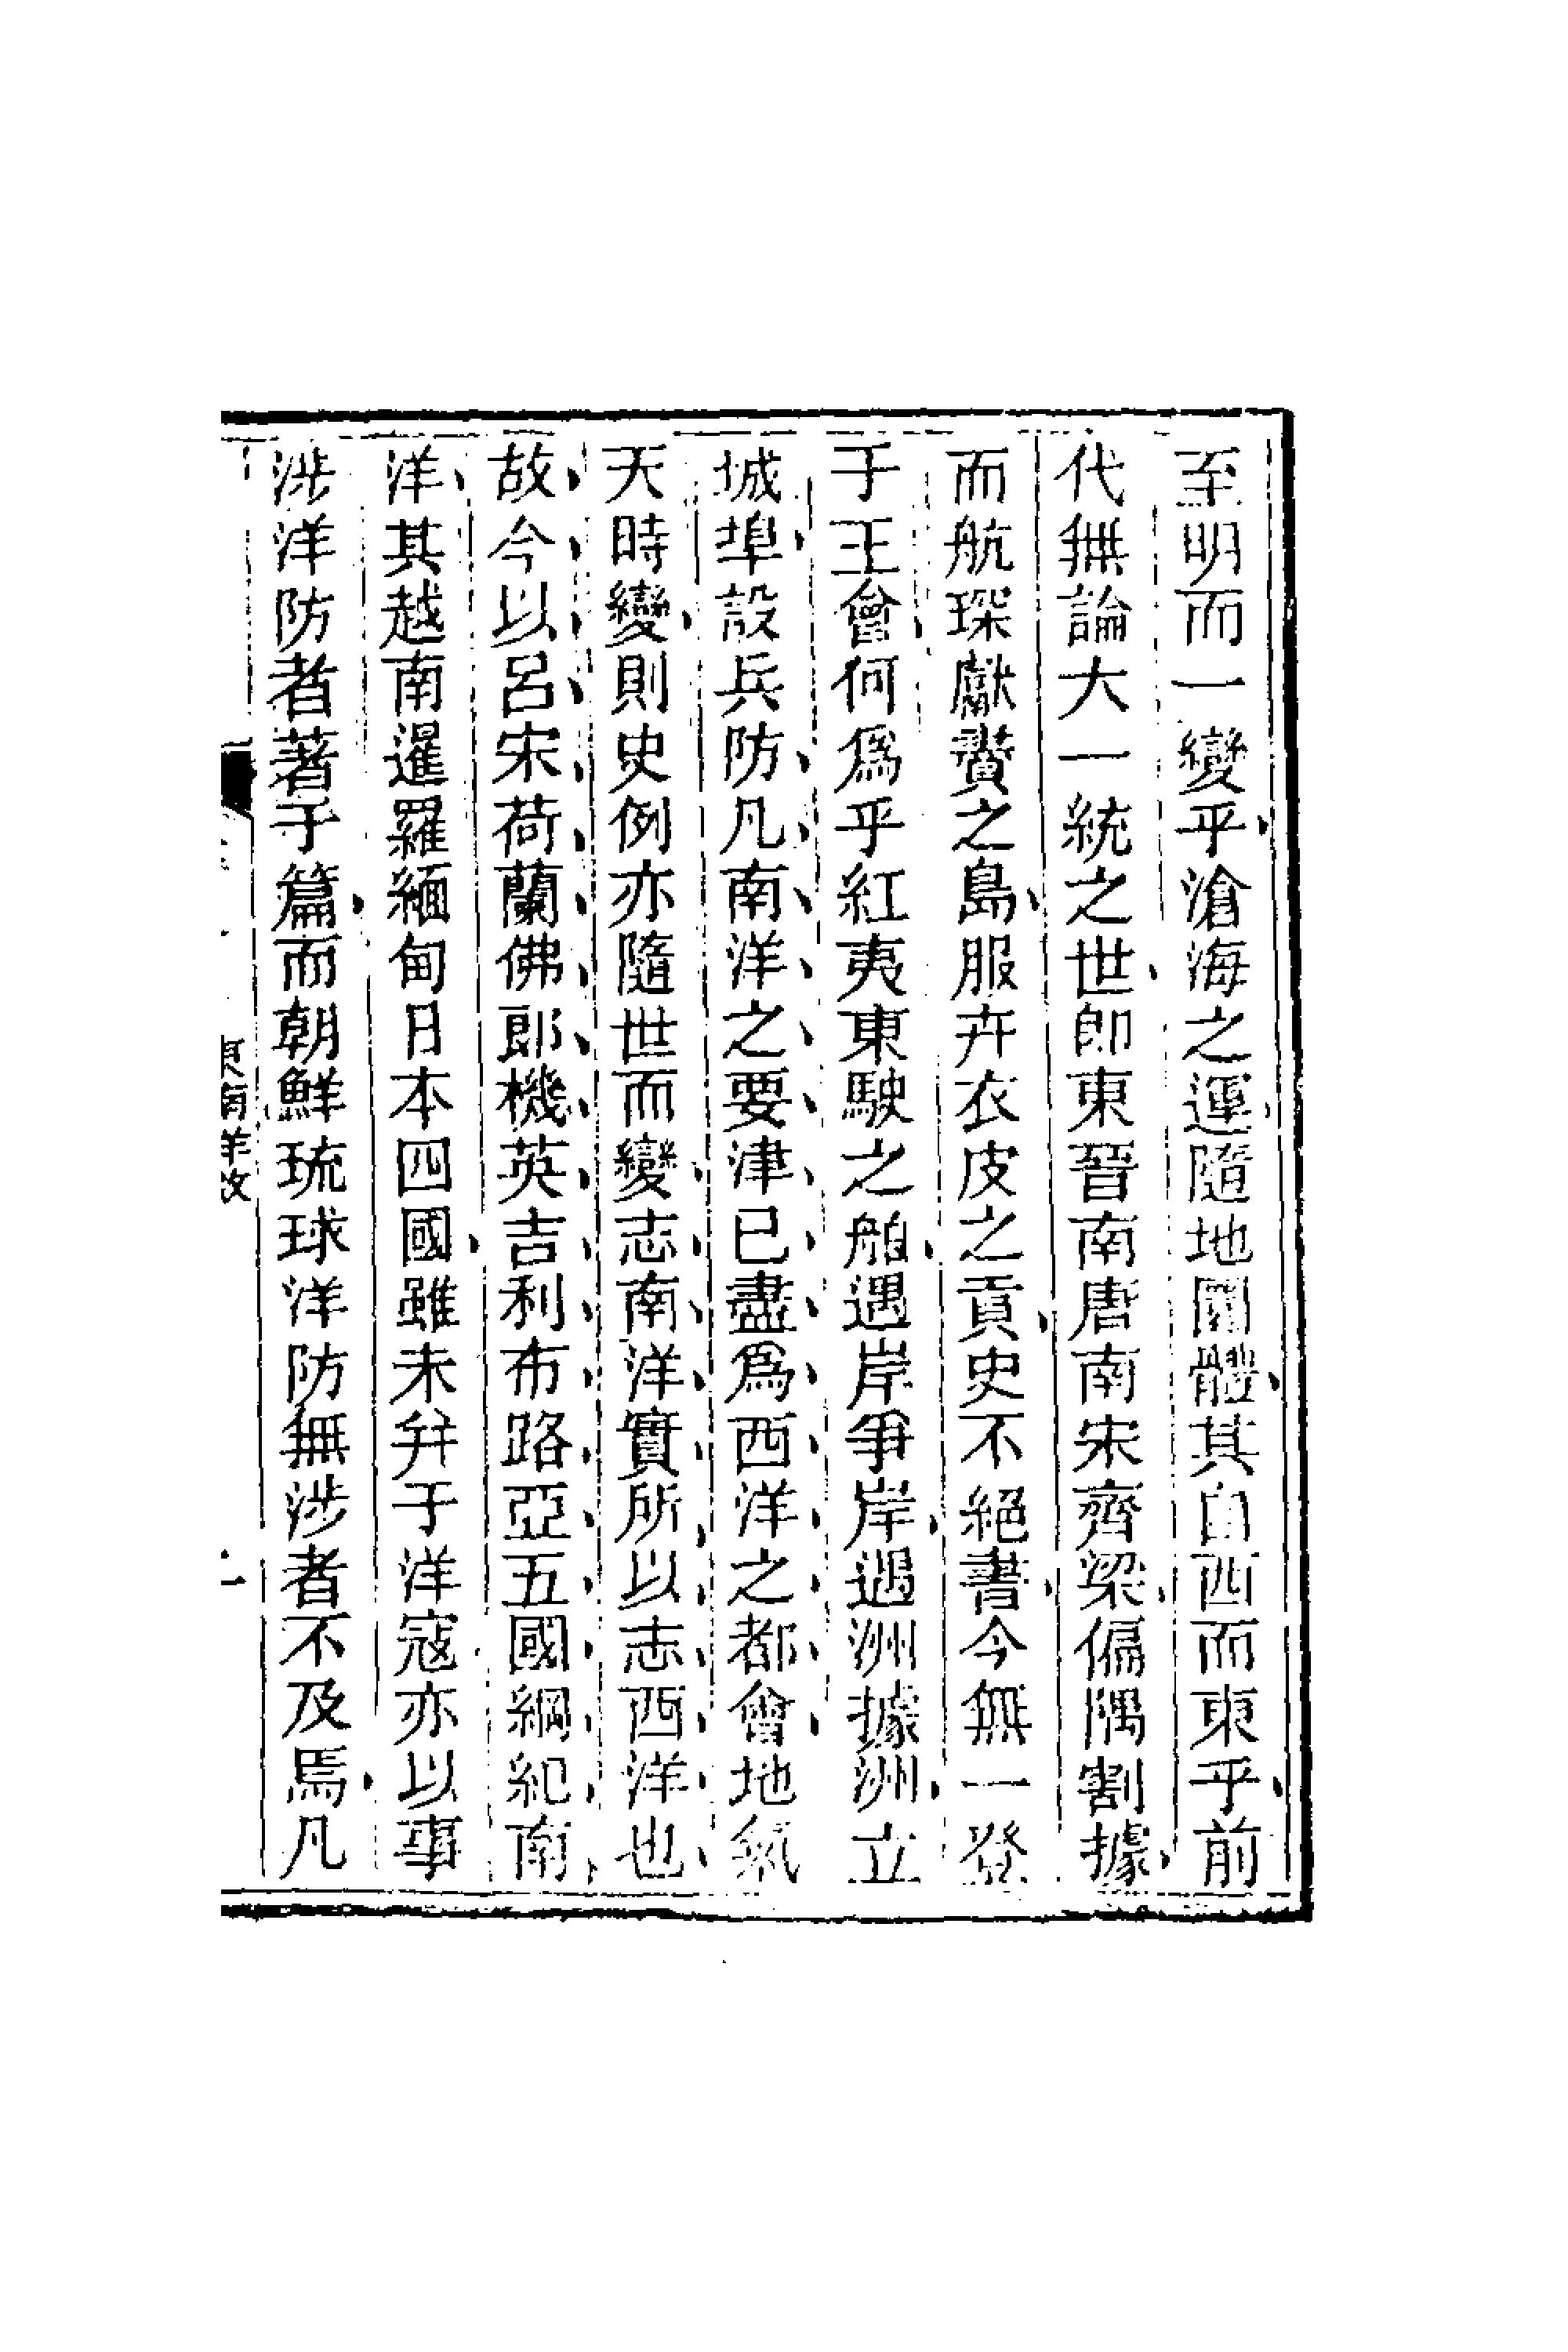 至明而一變乎滄海之運隨地圜體其自西而東乎前
代無論大一統之世卽東晉南唐南宋齊梁偏隅割據
而航琛獻賮之島服卉衣皮之貢史不絕書今無一登
于王會何爲乎紅夷東駛之舶遇岸爭岸遇洲據洲立
城埠設兵防凡南洋之要津已盡爲西洋之都會地氣
天時變則史例亦隨世而變志南洋實所以志西洋也
故今以呂宋荷蘭佛郎機英吉利布路亞五國綱紀南
洋其越南暹羅緬甸日本四國雖未幷于洋寇亦以事
涉洋防者著于篇而朝鮮琉球洋防無涉者不及焉凡
東南洋敘